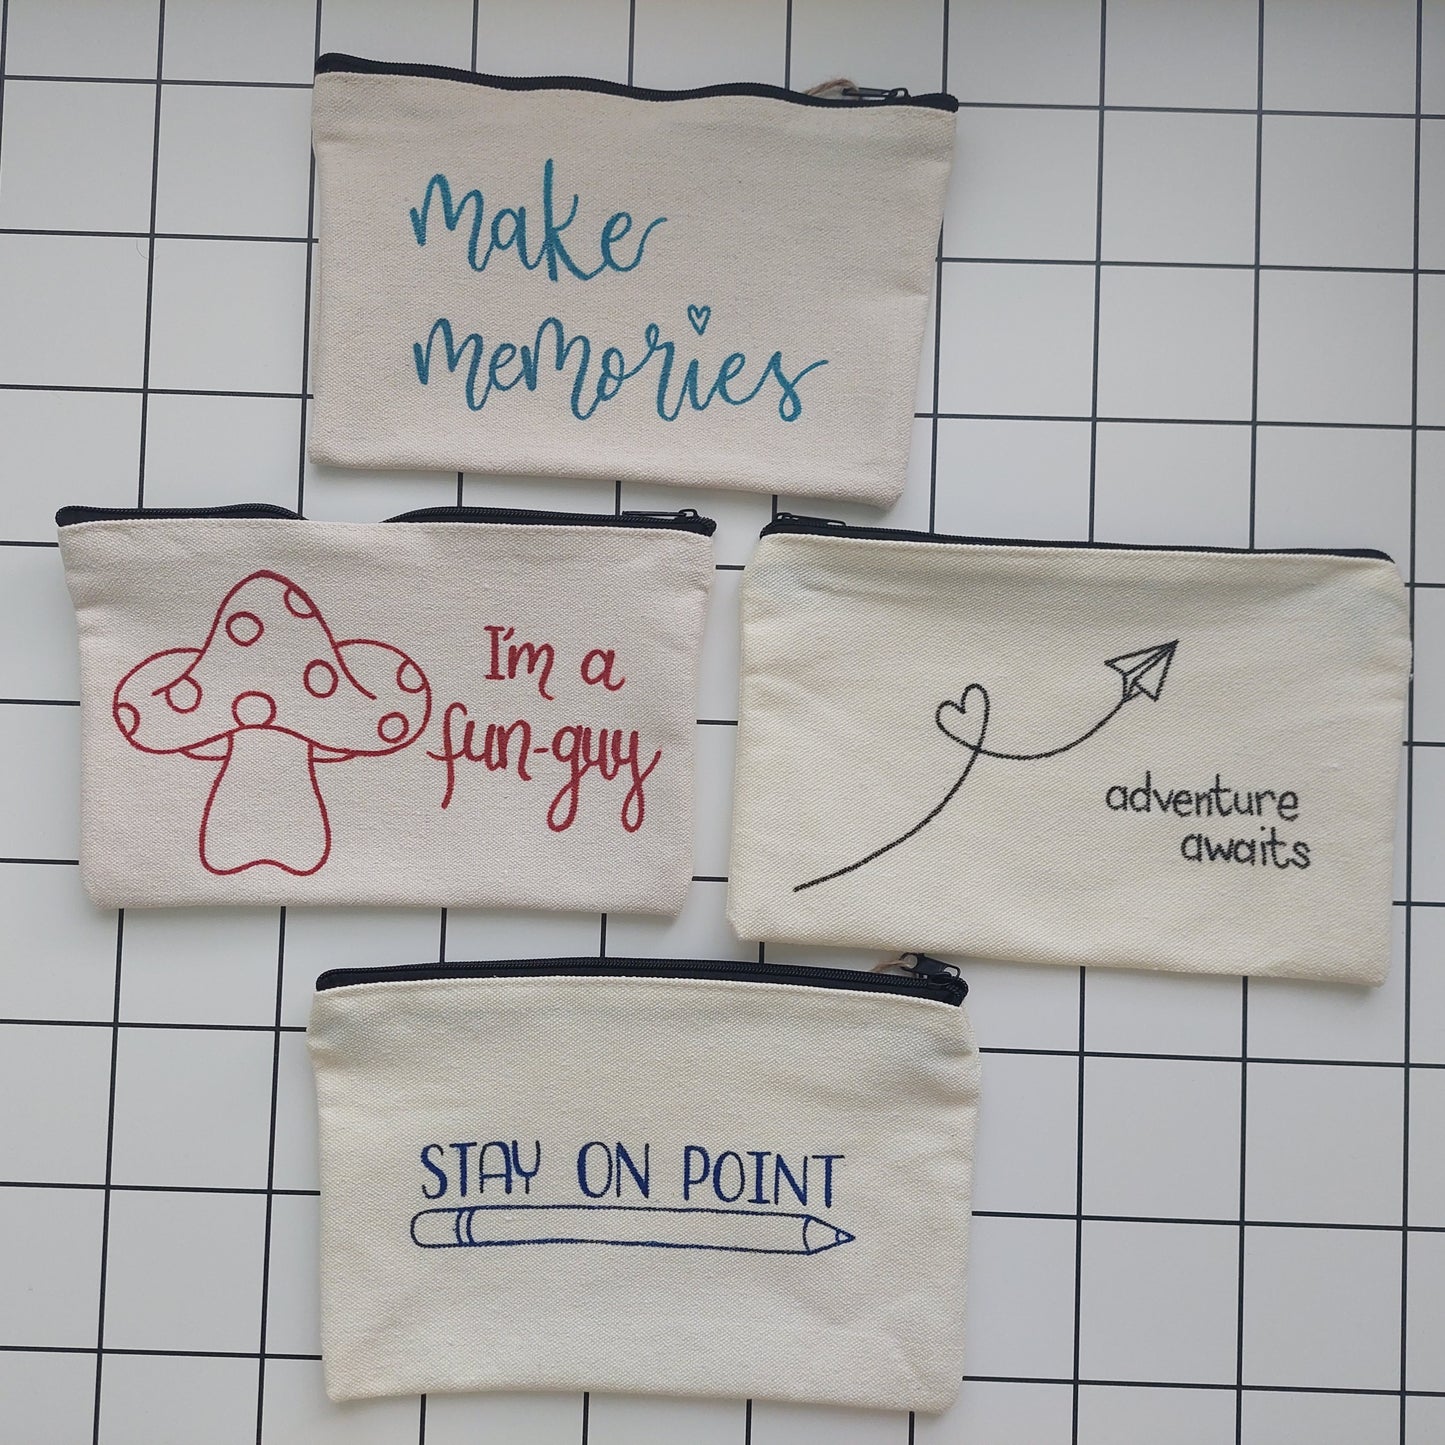 make
memories
I'm a
fun-guy
adventure
awaits
STAY ON POINT